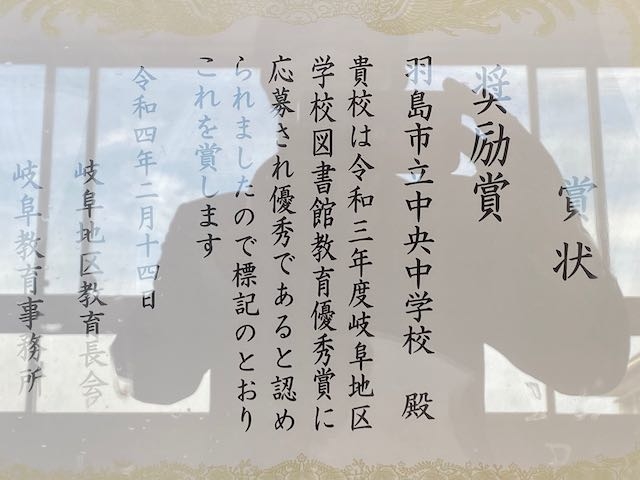 賞状
奨励賞
羽島市立中央中学校 殿
貴校は令和三年度岐阜地区
学校図書館教育優秀賞に
応募され優秀であると認め
られましたので標記のとおり
これを賞します
令和四年二月十四日
岐阜地区教育長会
岐阜教育事務所